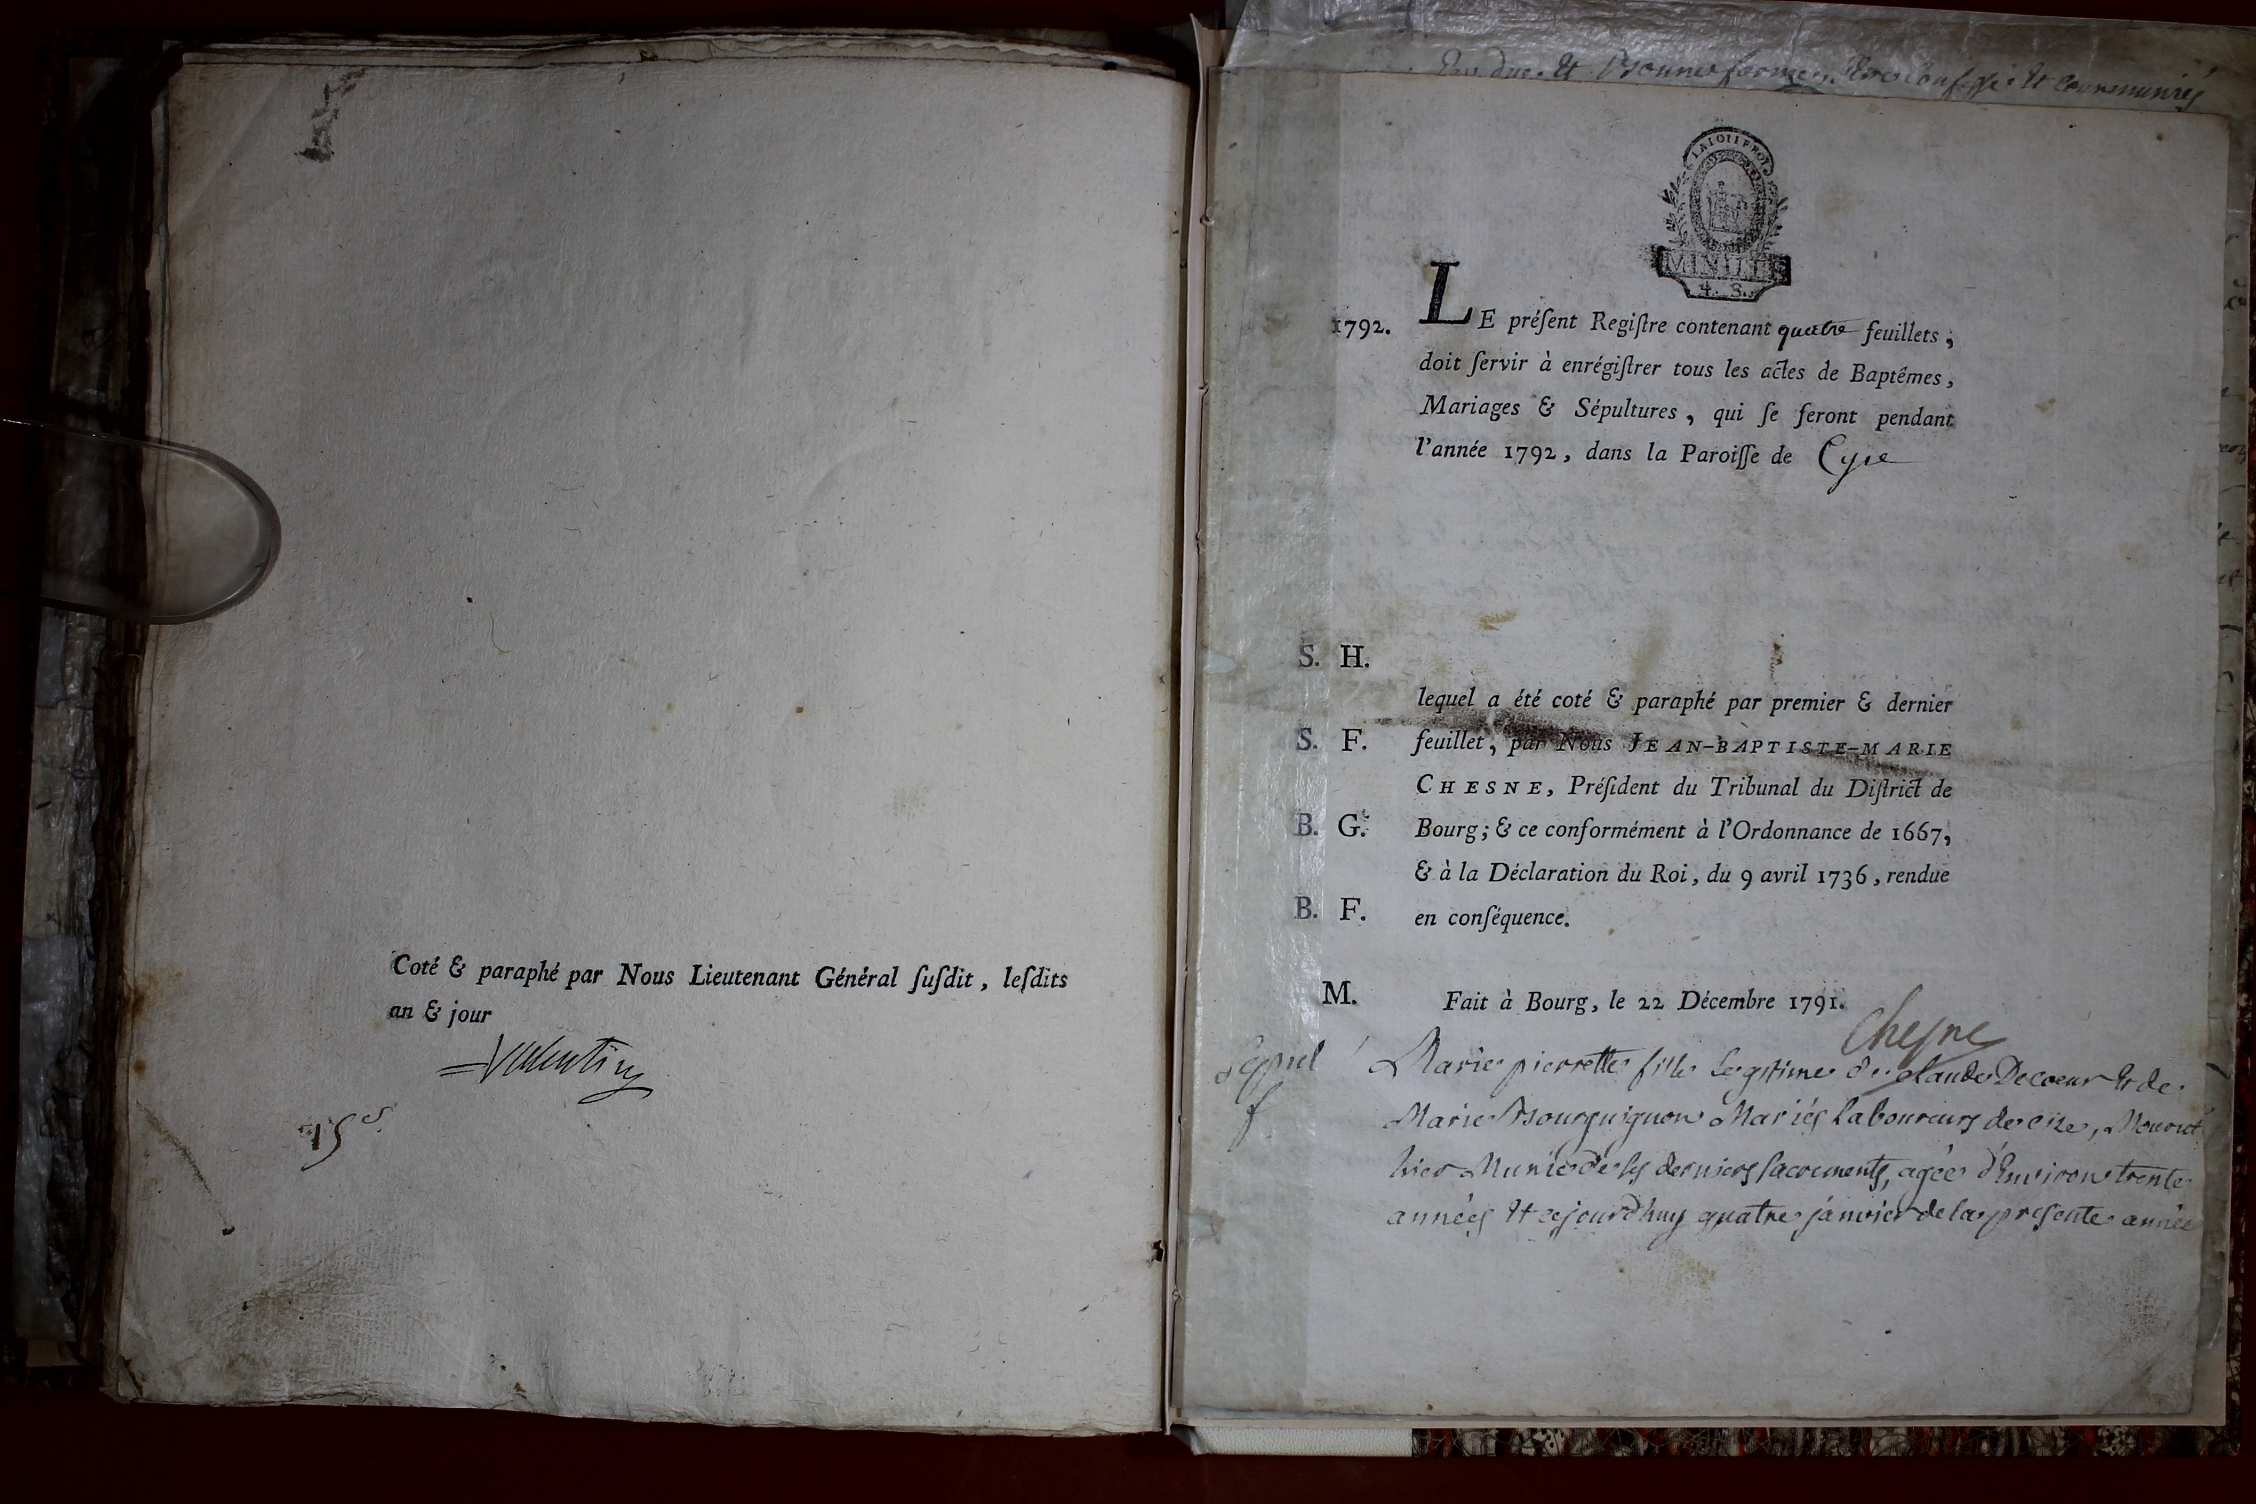 Coté & paraphé par Nous Lieutenant Général ſuſdit, leſdits
an & jour
Valentin
15 s.
En due et bonne forme, 
LA LOI LE ROI
MINUTES
4. S.
1792. LE préſent Regiſtre contenant quatre feuillets,
doit ſervir à enrégiſtrer tous les actes de Baptêmes,
Mariages & Sépultures, qui ſe feront pendant
l'année 1792, dans la Paroiſſe de Cyse
S. H.
lequel a été coté & paraphé par premier & dernier
S. F. feuillet, par Nous JEAN-BAPTISTE-MARIE
CHESNE, Préſident du Tribunal du Diſtrict de
B. G. Bourg; & ce conformément à l'Ordonnance de 1667,
& à la Déclaration du Roi, du 9 avril 1736, rendue
B. F. en conſéquence.
M. Fait à Bourg, le 22 Décembre 1791.
Chesne
Sepul Marie pierrette fille Legitime de claude Decoeur et de
f Marie Bourguignon Mariés laboureurs de Cize, Mourut
hier Munie de ses derniers sacrements, agée d'environ trente
années et cejourd'huy quatre janvier de la presente année